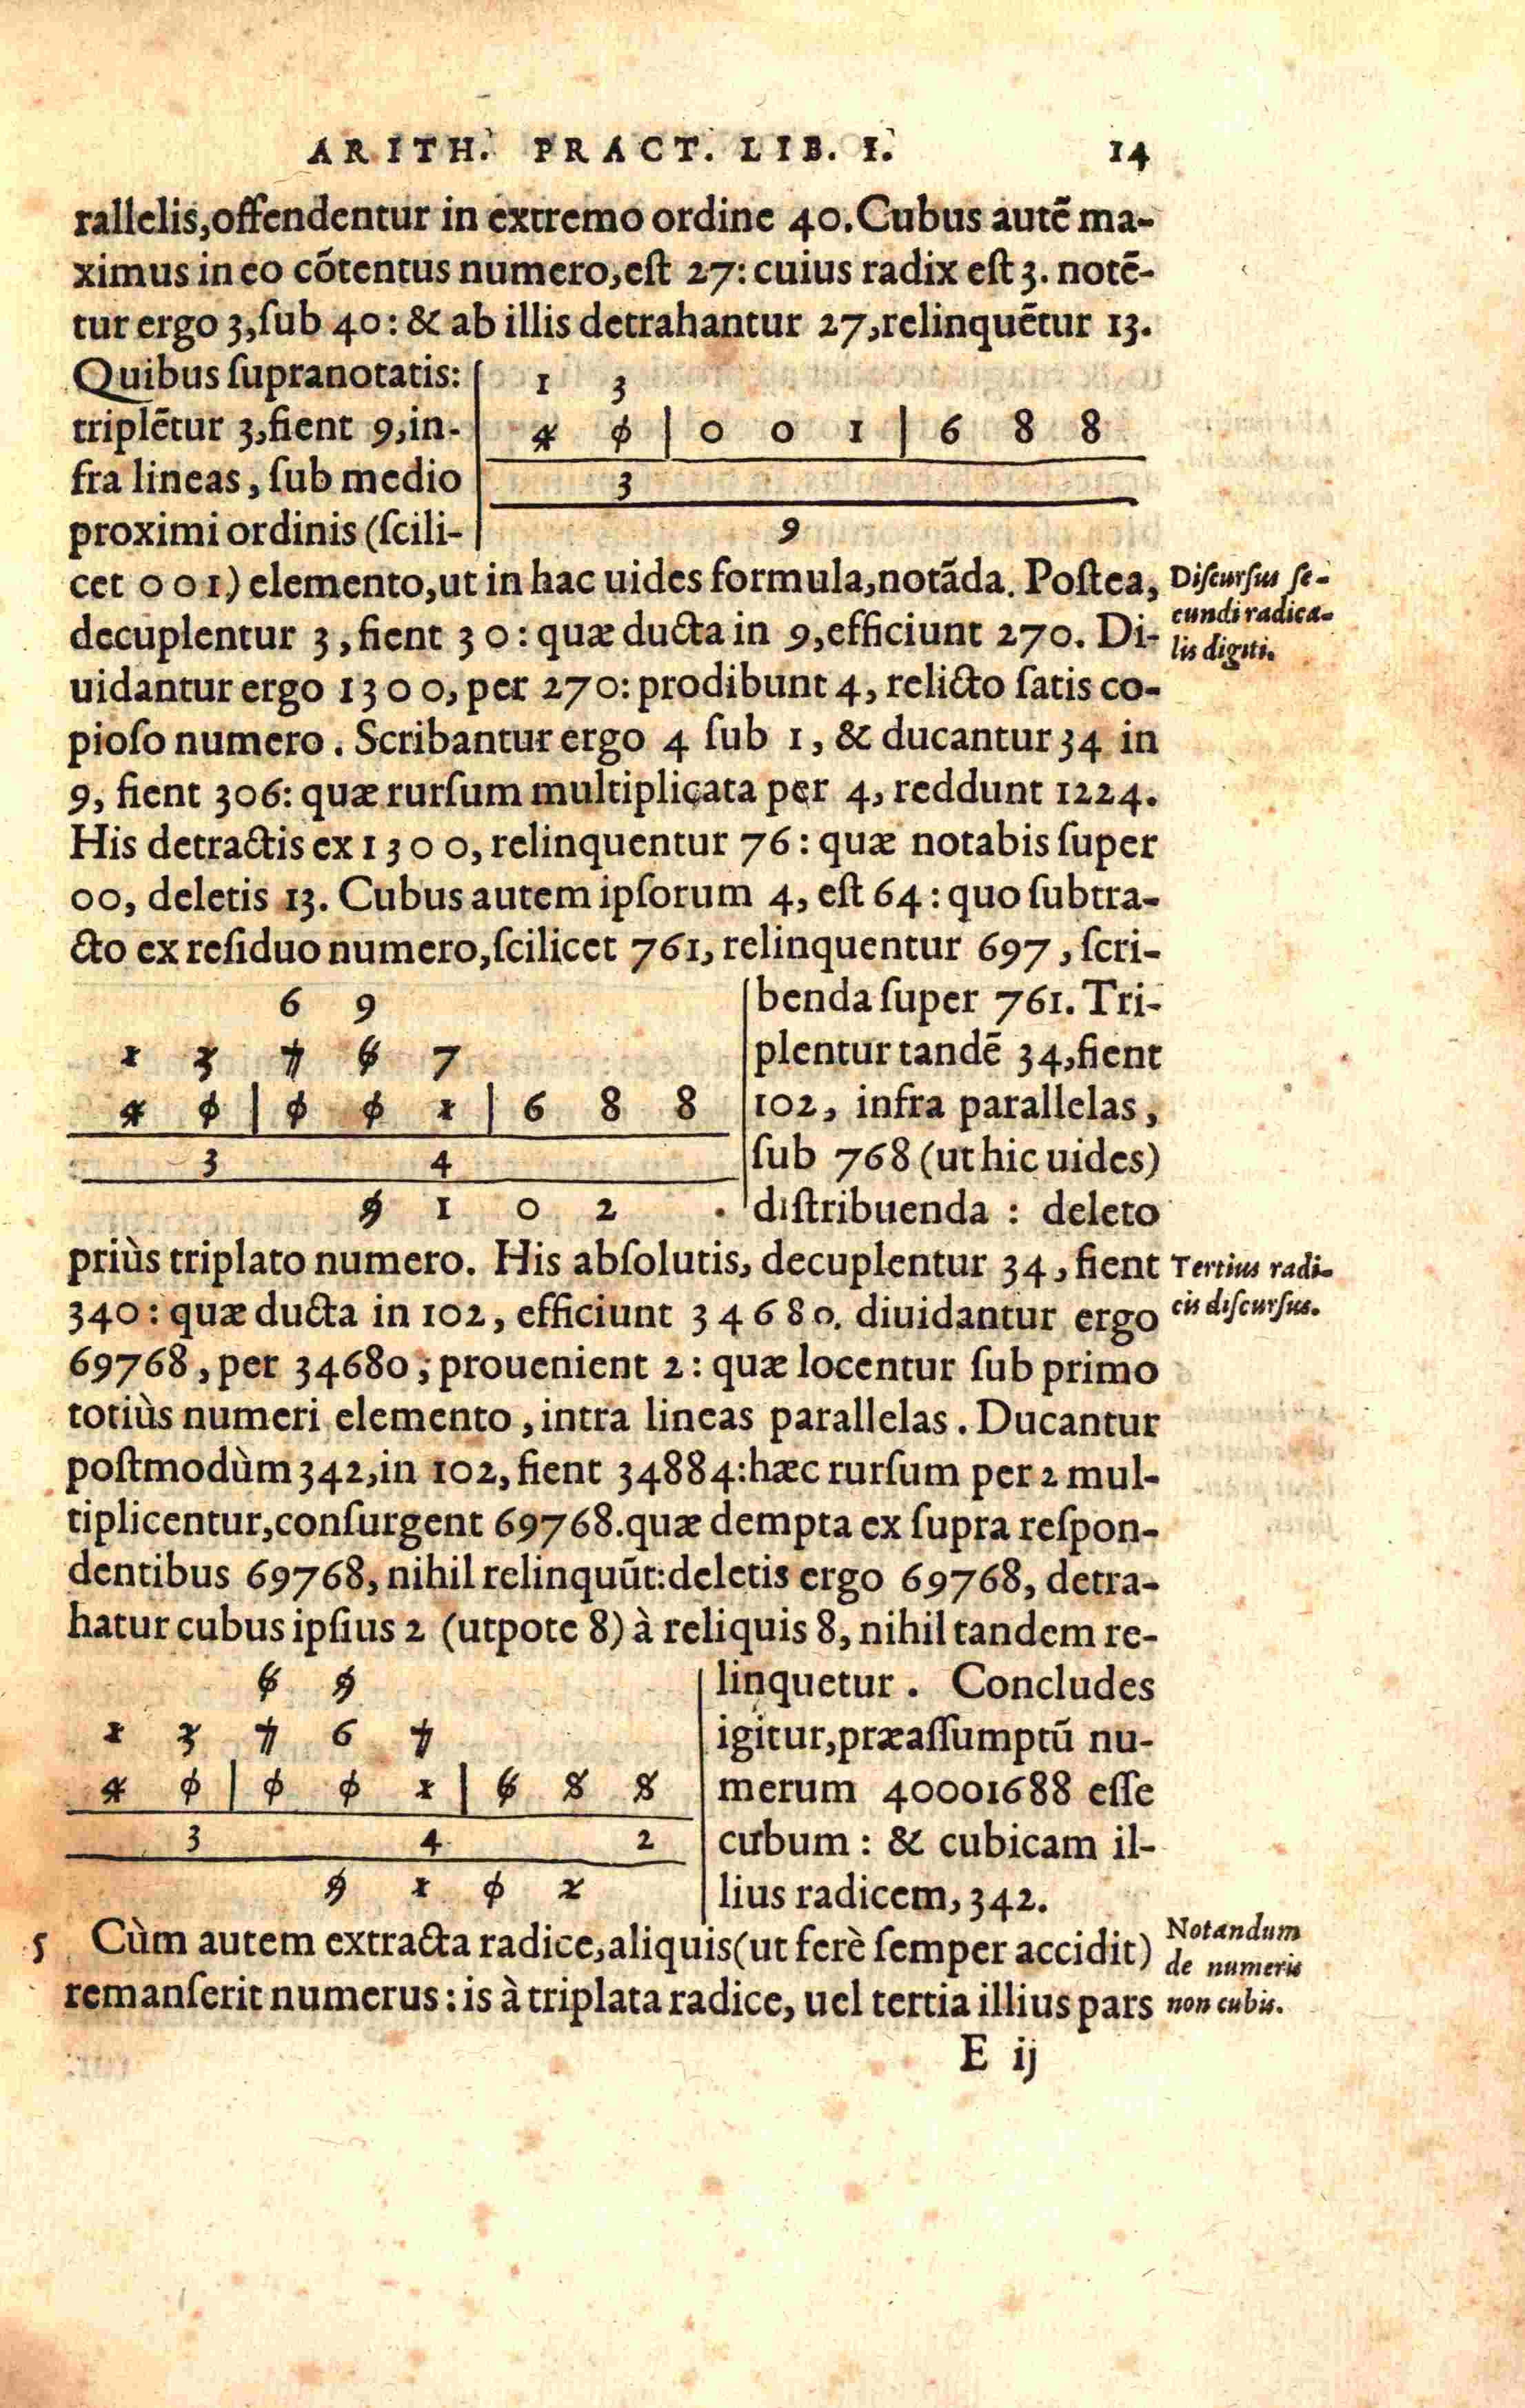 ARITH. PRACT. LIB. I. 14
rallelis,offendentur in extremo ordine 40.Cubus autē ma-
ximus in eo cōtentus numero,est 27: cuius radix est 3. notē-
tur ergo 3,sub 40: & ab illis detrahantur 27,relinquētur 13.
Quibus supranotatis:
triplētur 3,fient 9,in-
fra lineas, sub medio
proximi ordinis (scili-
1 3
4 0 | 0 0 1 | 6 8 8
3
9
cet 001) elemento,ut in hac uides formula,notāda. Postea,
Discursus se-
cundi radica-
lis digiti.
decuplentur 3, fient 30: quæ ducta in 9,efficiunt 270. Di-
uidantur ergo 1300, per 270: prodibunt 4, relicto satis co-
pioso numero. Scribantur ergo 4 sub 1, & ducantur 34 in
9, fient 306: quæ rursum multiplicata per 4, reddunt 1224.
His detractis ex 1300, relinquentur 76: quæ notabis super
00, deletis 13. Cubus autem ipsorum 4, est 64: quo subtra-
cto ex residuo numero,scilicet 761, relinquentur 697, scri-
6 9
1 3 7 6 7
4 0 | 0 0 1 | 6 8 8
3 4
9 1 0 2 .
benda super 761. Tri-
plentur tandē 34,fient
102, infra parallelas,
sub 768 (ut hic uides)
distribuenda: deleto
priùs triplato numero. His absolutis, decuplentur 34, fient
Tertius radi-
cis discursus.
340: quæ ducta in 102, efficiunt 34680. diuidantur ergo
69768, per 34680; prouenient 2: quæ locentur sub primo
totiùs numeri elemento, intra lineas parallelas. Ducantur
postmodùm 342,in 102, fient 34884:hæc rursum per 2 mul-
tiplicentur,consurgent 69768.quæ dempta ex supra respon-
dentibus 69768, nihil relinquūt:deletis ergo 69768, detra-
hatur cubus ipsius 2 (utpote 8) à reliquis 8, nihil tandem re-
6 9
1 3 7 6 7
4 0 | 0 0 1 | 6 8 8
3 4 2
9 1 0 2
linquetur. Concludes
igitur,præassumptū nu-
merum 40001688 esse
cubum: & cubicam il-
lius radicem, 342.
5 Cùm autem extracta radice,aliquis(ut ferè semper accidit)
remanserit numerus: is à triplata radice, uel tertia illius pars
Notandum
de numeris
non cubis.
E ij